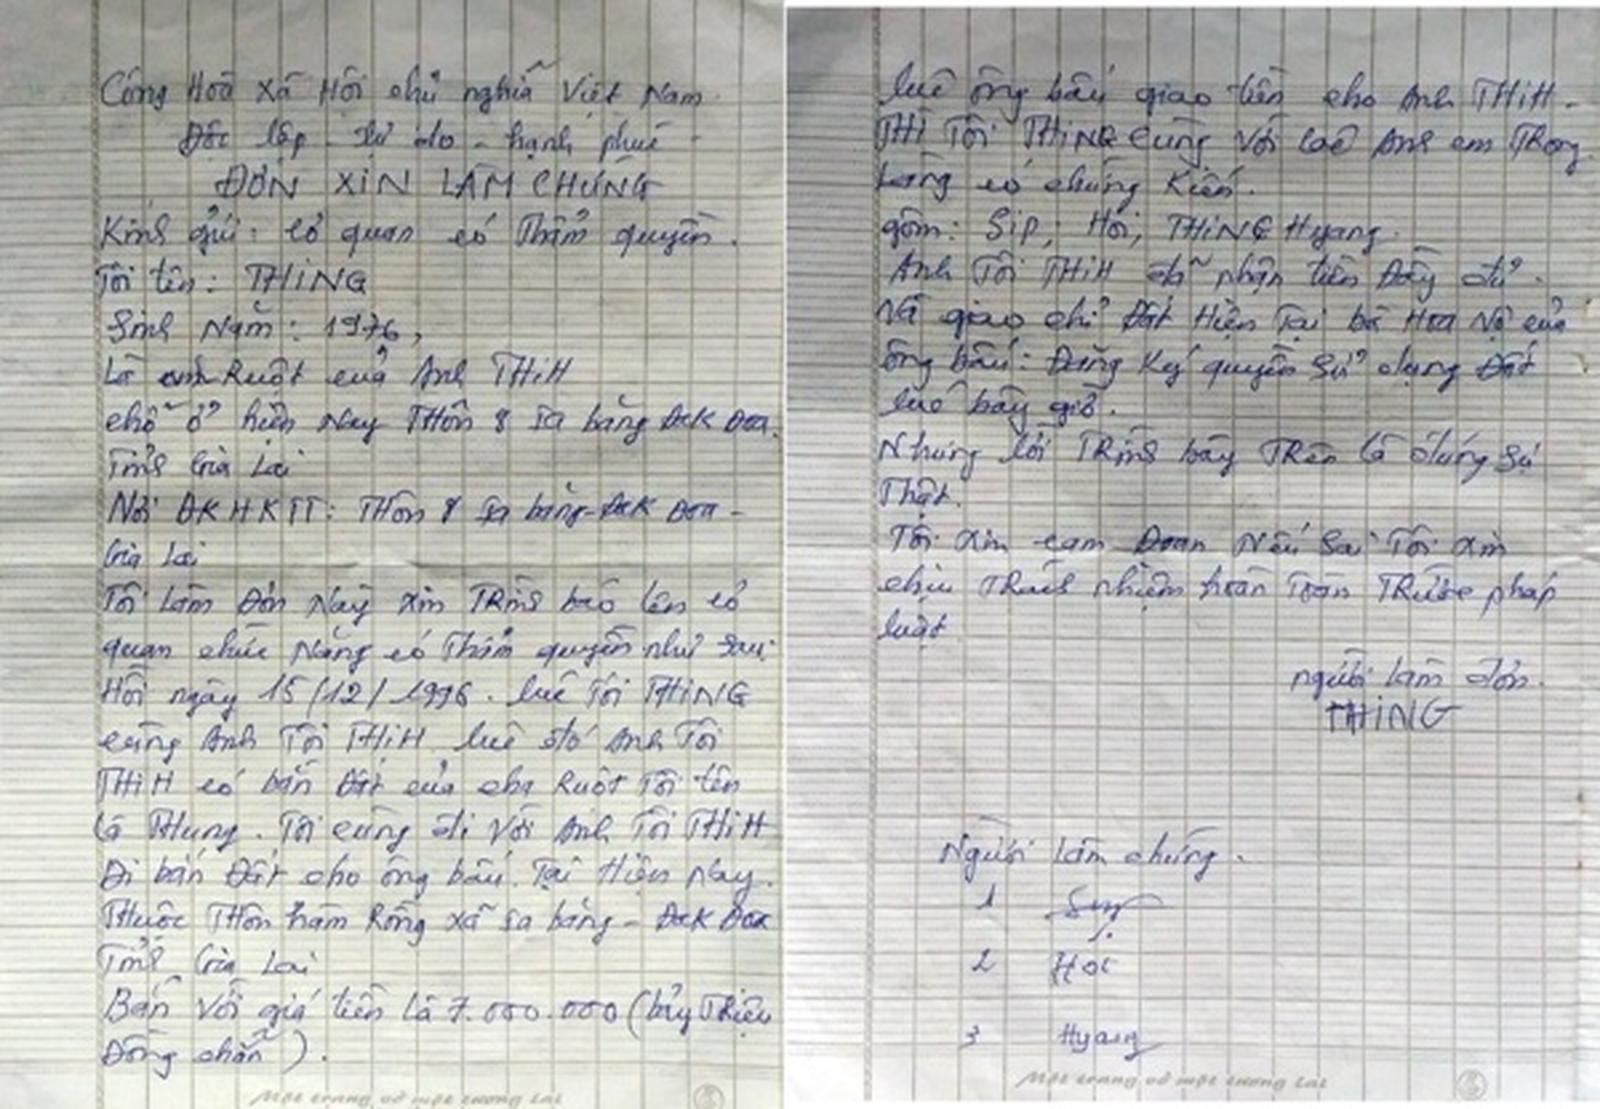 Cộng Hoà xã Hội chủ nghĩa Việt Nam
Độc lập - tự do - hạnh phúc -
ĐƠN XIN LÀM CHỨNG
Kính gửi: cơ quan có Thẩm quyền.
Tôi tên: THING
Sinh Năm: 1976,
Là anh Ruột của Anh THiH
chỗ ở hiện Nay THôn 8 Ia băng ĐăK Đoa.
Tỉnh Gia Lai
Nơi ĐKHKTT: THôn 8 Ia băng - ĐăK Đoa -
Gia Lai
Tôi Làm Đơn Này xin TRình báo lên cơ
quan chức Năng có Thẩm quyền như Sau:
Hồi ngày 15/12/1996. lúc Tôi THiNG
cùng Anh Tôi THiH lúc đó Anh Tôi
THiH có bán Đất của cha Ruột Tôi tên
là Thung. Tôi cùng đi Với Anh Tôi THiH
Đi bán Đất cho ông bấu. Tại Hiện Nay.
Thuộc THôn hàm Rồng xã Ia băng - ĐăK Đoa
Tỉnh Gia Lai
Bán Với giá tiền Là 7.000.000 (bảy TRiệu
Đồng chẵn).
Một trang vở một tương lai
lúc ông bấu giao tiền cho Anh THiH.
THÌ TÔi THiNG Cùng Với các Anh em TRong
Làng có chứng Kiến.
gồm: Sip; Hơi; THiNG Hyang.
Anh Tôi THiH đã nhận tiền Đầy đủ.
Và giao chỉ Đất Hiện Tại bà Hoa Nợ của
ông bấu: Đăng Ký quyền Sử dụng Đất
lúc bây giờ.
Những lời TRình bày TRên là đúng Sự
Thật.
Tôi xin cam Đoan Nếu Sai Tôi xin
chịu TRách nhiệm hoàn Toàn TRước pháp
luật
người làm đơn.
THiNG
Người làm chứng.
1
2 Hơi
3 Hyang
Một trang vở một tương lai